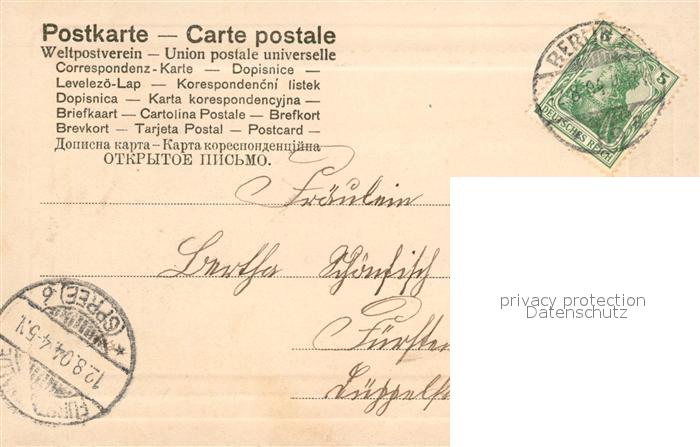 Postkarte — Carte postale
Weltpostverein — Union postale universelle
Correspondenz-Karte — Dopisnice —
Levelező-Lap — Korespondenční listek
Dopisnica — Karta korespondencyjna —
Briefkaart — Cartolina Postale — Brefkort
Brevkort — Tarjeta Postal — Postcard —
Дописна карта — Карта кореспонденційна
ОТКРЫТОЕ ПИСЬМО.
BERLIN
5 5
8.04
DEUTSCHES REICH
Fräulein
Bertha Schönfisch
privacy protection
Datenschutz
Fürsten
(SPREE) 6
12.8.04.4-5.V.